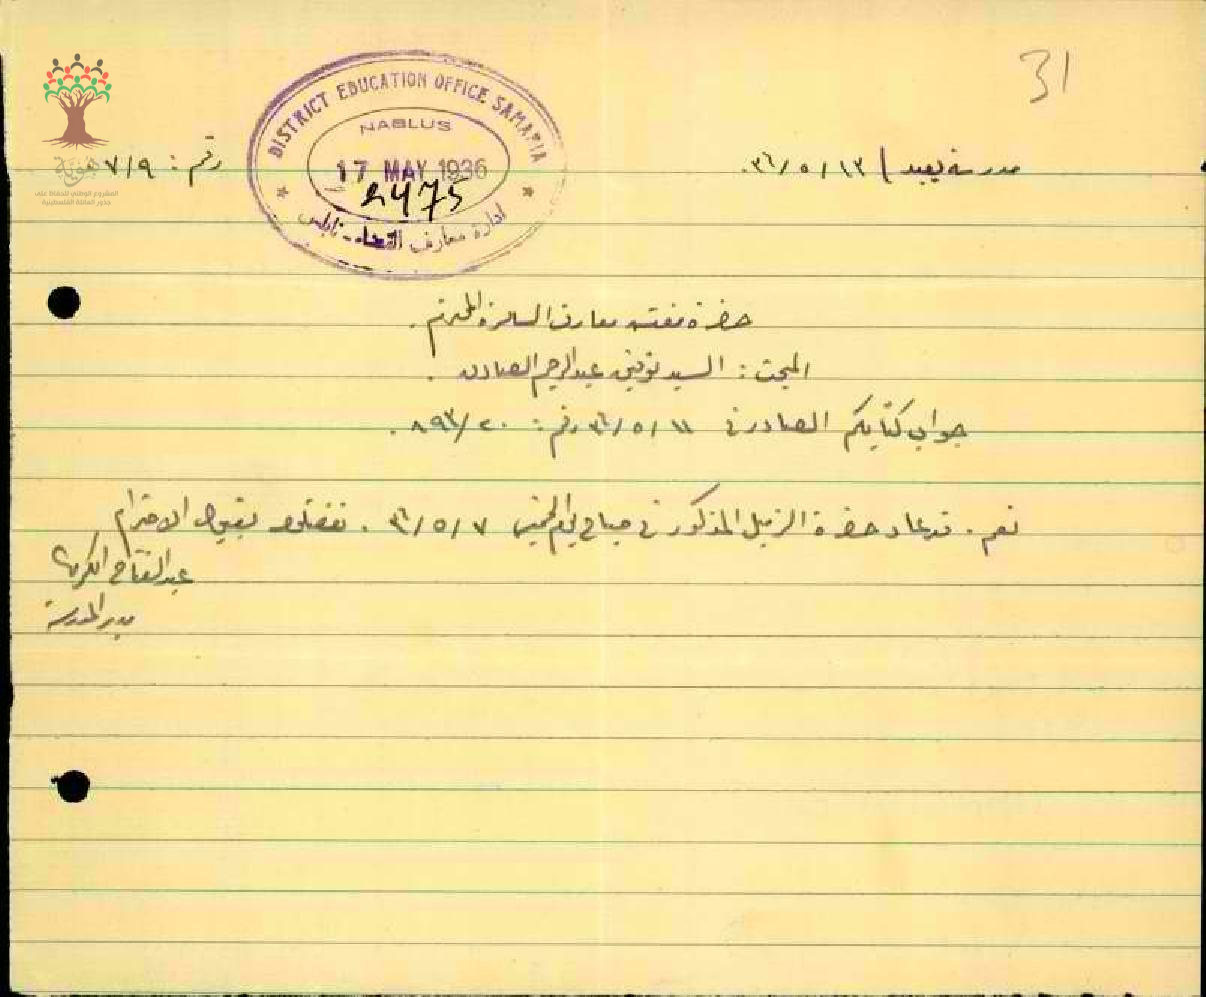 31
DISTRICT EDUCATION OFFICE SAMARIA
NABLUS
17 MAY 1936
2475
ادارة معارف القضاء - نابلس
هوية
المشروع الوطني للحفاظ على
جذور العائلة الفلسطينية
مدرسة يعبد ١٣ / ٥ / ٣٦.
رقم : ٧/٩
حضرة مفتش معارف السامرة المحترم .
المبحث : السيد توفيق عبدالرحيم الصادق .
جواب كتابكم الصادر في ١١ / ٥ / ٣٦ رقم : ٢٠ / ٨٩٣ .
نعم . قد عاد حضرة الزميل المذكور في صباح يوم الخميس ٧ / ٥ / ٣٦ . تفضلوا بقبول الاحترام
عبدالفتاح
مدير المدرسة